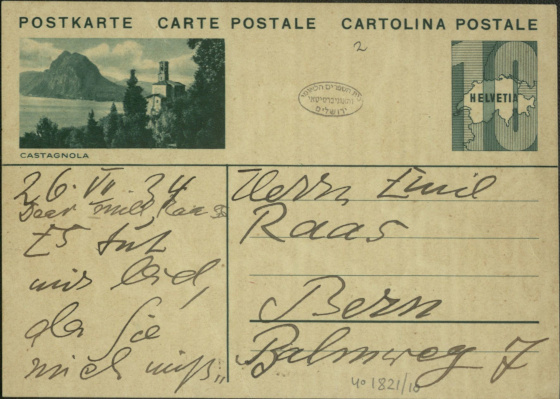 POSTKARTE CARTE POSTALE CARTOLINA POSTALE
2
10
HELVETIA
בית הספרים הלאומי
והאוניברסיטאי
ירושלים
CASTAGNOLA
26. VI. 34
Dear Emil Raas
Es tut
mir leid,
das Sie
mich miß„
Herrn Emil
Raas
Bern
Balmweg 7
40 1821/10